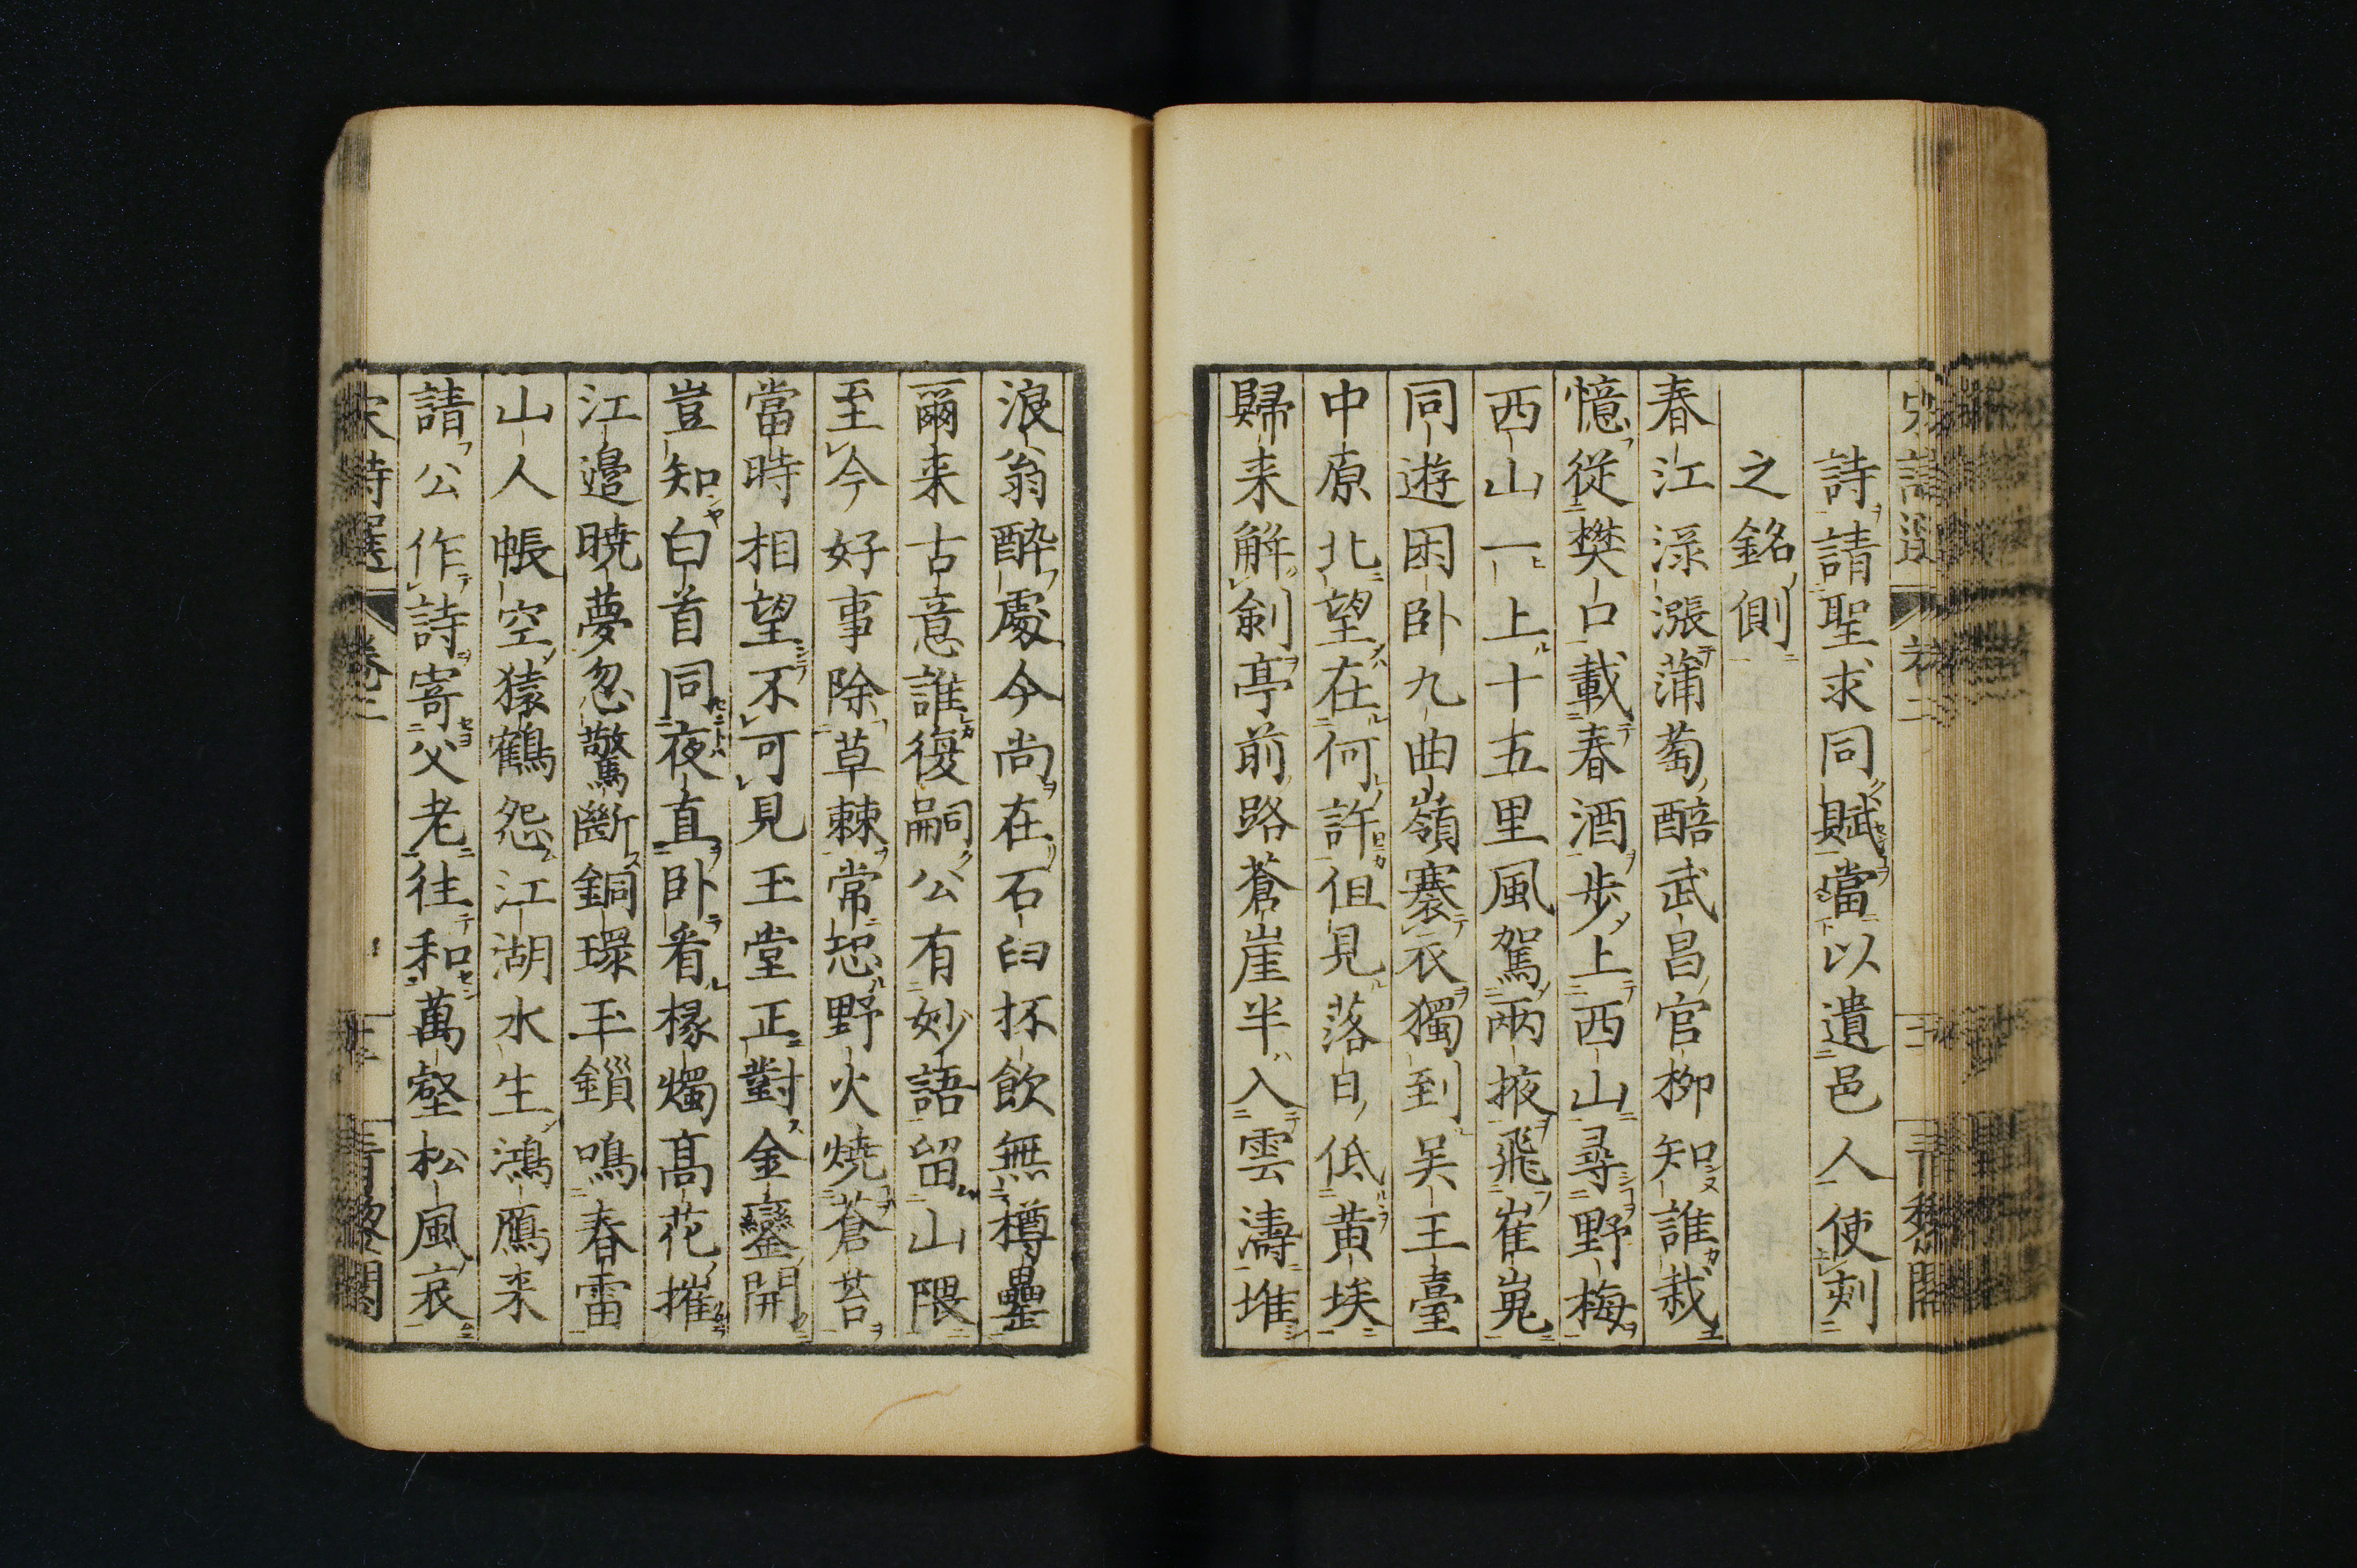 詩請聖求同賦當以遺邑人使刻
之銘側
春江淥漲蒲萄醅武昌官栁知誰栽
憶從樊口載春酒歩上西山尋野梅
西山一上十五里風駕兩掖飛崔嵬
同遊困卧九曲嶺褰衣獨到吴王臺
中原北望在何許但見落日低黄埃
歸来解劍亭前路蒼崖半入雲濤堆
浪翁醉處今尚在石臼抔飲無樽罍
爾来古意誰復嗣公有妙語留山隈
至今好事除草棘常恐野火燒蒼苔
當時相望不可見玉堂正對金鑾開
豈知白首同夜直卧看椽燭髙花摧
江邉曉夢忽驚斷銅環玉鎻鳴春雷
山人帳空猿鶴怨江湖水生鴻鴈来
請公作詩寄父老徃和萬壑松風哀
宋詩選 卷二